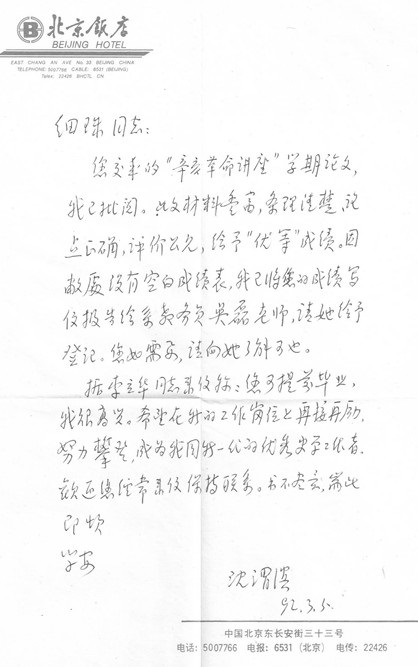 北京饭店
BEIJING HOTEL
EAST CHANG AN AVE No. 33 BEIJING CHINA
TELEPHONE: 5007766 CABLE: 6531 (BEIJING)
Telex: 22426 BHCTL CN
细珠同志：
您交来的“辛亥革命讲座”学期论文，
我已批阅。此文材料丰富，条理清楚，论
点正确，评价公允，给予“优等”成绩。因
敝处没有空白成绩表，我已将您的成绩写
信报告给系教务员吴磊老师，请她给予
登记。您如需要，请向她了解可也。
据李立华同志来信称：您可提前毕业，
我很高兴。希望在新的工作岗位上再接再励，
努力攀登，成为我国新一代的优秀史学工作者，
欢迎您经常来信保持联系。书不尽言，耑此
即颂
学安
沈渭滨
92.3.5.
中国北京东长安街三十三号
电话：5007766 电报：6531（北京） 电传：22426